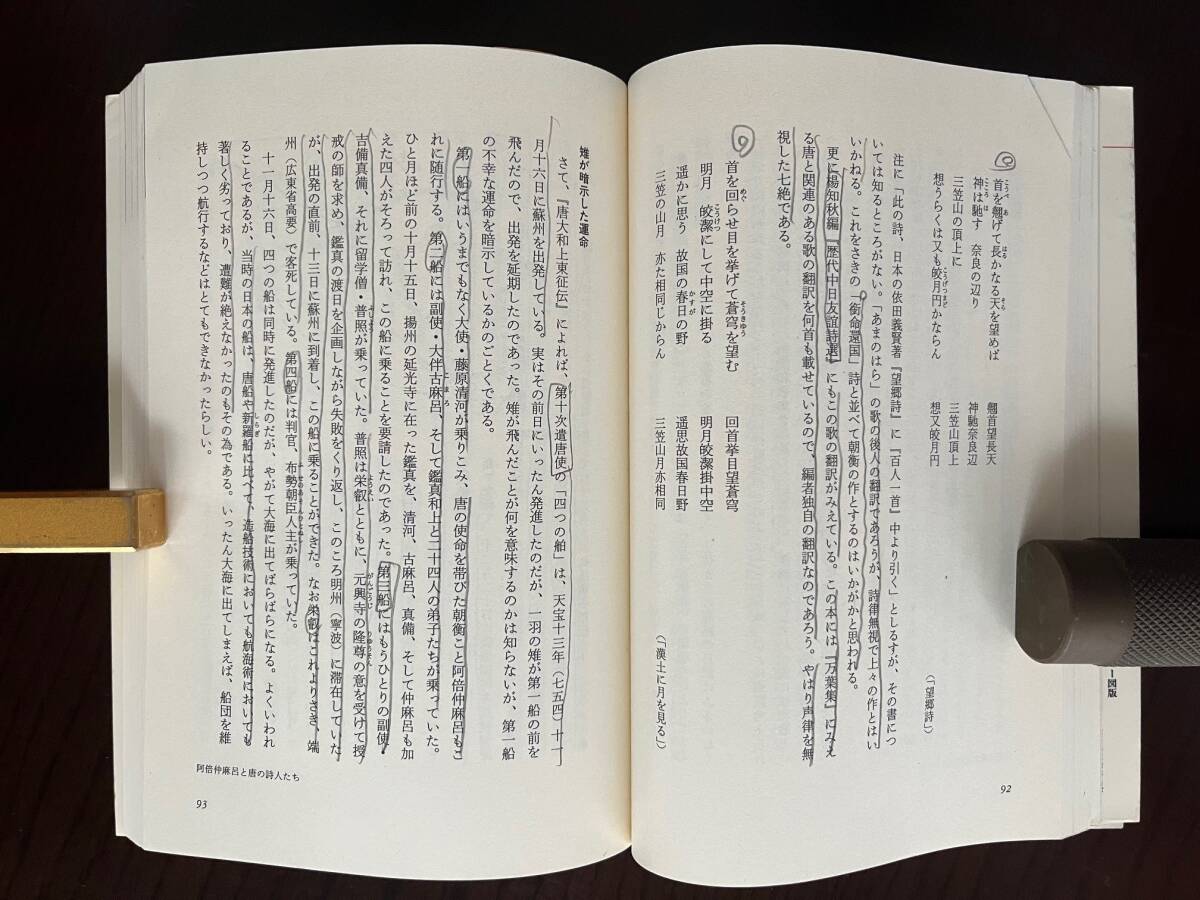 首を翹げて長かなる天を望めば
神は馳す 奈良の辺り
三笠山の頂上に
想うらくは又も皎月円かならん
翹首望長天
神馳奈良辺
三笠山頂上
想又皎月円
(「望郷詩」)
注に「此の詩、日本の依田義賢著『望郷詩』に『百人一首』中より引く」としるすが、その書につ
いては知るところがない。「あまのはら」の歌の後人の翻訳であろうが、詩律無視で上々の作とはい
いかねる。これをさきの「銜命還国」詩と並べて朝衡の作とするのはいかがかと思われる。
更に楊知秋編『歴代中日友誼詩選』にもこの歌の翻訳がみえている。この本には『万葉集』にみえ
る唐と関連のある歌の翻訳を何首も載せているので、編者独自の翻訳なのであろう。やはり声律を無
視した七絶である。
首を回らせ目を挙げて蒼穹を望む
明月 皎潔にして中空に掛る
遥かに思う 故国の春日の野
三笠の山月 亦た相同じからん
回首挙目望蒼穹
明月皎潔掛中空
遥思故国春日野
三笠山月亦相同
(「漢土に月を見る」)
92
雉が暗示した運命
さて、『唐大和上東征伝』によれば、第十次遣唐使の「四つの舶」は、天宝十三年(七五四)十一
月十六日に蘇州を出発している。実はその前日にいったん発進したのだが、一羽の雉が第一船の前を
飛んだので、出発を延期したのであった。雉が飛んだことが何を意味するのかは知らないが、第一船
の不幸な運命を暗示しているかのごとくである。
第一船にはいうまでもなく大使・藤原清河が乗りこみ、唐の使命を帯びた朝衡こと阿倍仲麻呂もこ
れに随行する。第二船には副使・大伴古麻呂、そして鑑真和上と二十四人の弟子たちが乗っていた。
ひと月ほど前の十月十五日、揚州の延光寺に在った鑑真を、清河、古麻呂、真備、そして仲麻呂も加
えた四人がそろって訪れ、この船に乗ることを要請したのであった。第三船にはもうひとりの副使・
吉備真備、それに留学僧・普照が乗っていた。普照は栄叡とともに、元興寺の隆尊の意を受けて授
戒の師を求め、鑑真の渡日を企画しながら失敗をくり返し、このころ明州(寧波)に滞在していた
が、出発の直前、十三日に蘇州に到着し、この船に乗ることができた。なお栄叡はこれよりさき、端
州(広東省高要)で客死している。第四船には判官、布勢朝臣人主が乗っていた。
十一月十六日、四つの船は同時に発進したのだが、やがて大海に出てばらばらになる。よくいわれ
ることであるが、当時の日本の船は、唐船や新羅船に比べて、造船技術においても航海術においても
著しく劣っており、遭難が絶えなかったのもその為である。いったん大海に出てしまえば、船団を維
持しつつ航行するなどはとてもできなかったらしい。
阿倍仲麻呂と唐の詩人たち
93
ー図版